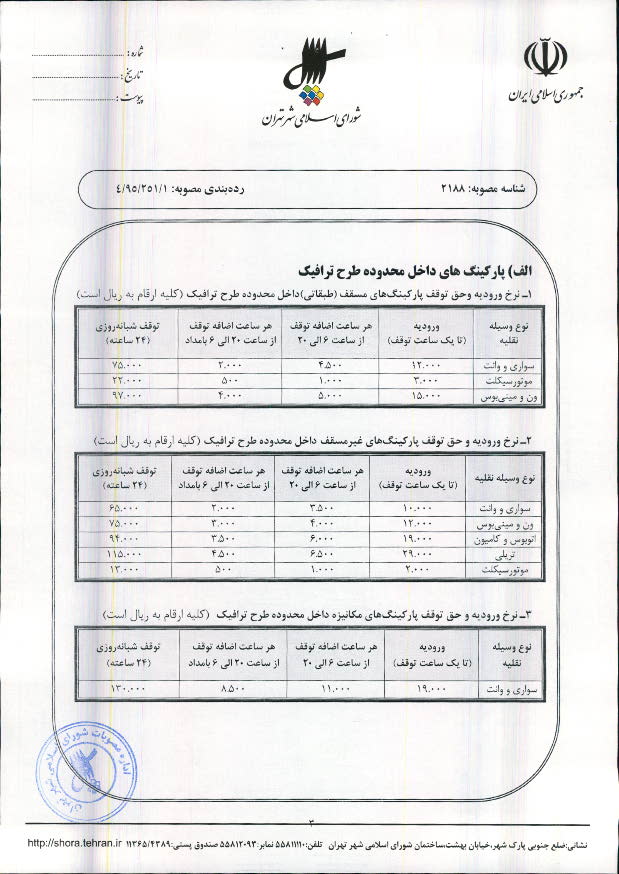 جمهوری اسلامی ایران
شورای اسلامی شهر تهران
شماره:
تاریخ:
پیوست:
شناسه مصوبه: ۲۱۸۸ رده‌بندی مصوبه: ٤/۹۵/۲۵۱/۱
الف) پارکینگ های داخل محدوده طرح ترافیک
۱ـ نرخ ورودیه وحق توقف پارکینگ‌های مسقف (طبقاتی)داخل محدوده طرح ترافیک (کلیه ارقام به ریال است)
نوع وسیله نقلیه ورودیه (تا یک ساعت توقف) هر ساعت اضافه توقف از ساعت ۶ الی ۲۰ هر ساعت اضافه توقف از ساعت ۲۰ الی ۶ بامداد توقف شبانه‌روزی (۲۴ ساعته)
سواری و وانت ۱۲.۰۰۰ ۴.۵۰۰ ۲.۰۰۰ ۷۵.۰۰۰
موتورسیکلت ۳.۰۰۰ ۱.۰۰۰ ۵۰۰ ۲۲.۰۰۰
ون و مینی‌بوس ۱۵.۰۰۰ ۵.۰۰۰ ۴.۰۰۰ ۹۷.۰۰۰
۲ـ نرخ ورودیه و حق توقف پارکینگ‌های غیرمسقف داخل محدوده طرح ترافیک (کلیه ارقام به ریال است)
نوع وسیله نقلیه ورودیه (تا یک ساعت توقف) هر ساعت اضافه توقف از ساعت ۶ الی ۲۰ هر ساعت اضافه توقف از ساعت ۲۰ الی ۶ بامداد توقف شبانه‌روزی (۲۴ ساعته)
سواری و وانت ۱۰.۰۰۰ ۳.۵۰۰ ۲.۰۰۰ ۶۵.۰۰۰
ون و مینی‌بوس ۱۲.۰۰۰ ۴.۰۰۰ ۳.۰۰۰ ۷۵.۰۰۰
اتوبوس و کامیون ۱۹.۰۰۰ ۶.۰۰۰ ۳.۵۰۰ ۹۴.۰۰۰
تریلی ۲۹.۰۰۰ ۶.۵۰۰ ۴.۵۰۰ ۱۱۵.۰۰۰
موتورسیکلت ۲.۰۰۰ ۱.۰۰۰ ۵۰۰ ۱۳.۰۰۰
۳ـ نرخ ورودیه و حق توقف پارکینگ‌های مکانیزه داخل محدوده طرح ترافیک (کلیه ارقام به ریال است)
نوع وسیله نقلیه ورودیه (تا یک ساعت توقف) هر ساعت اضافه توقف از ساعت ۶ الی ۲۰ هر ساعت اضافه توقف از ساعت ۲۰ الی ۶ بامداد توقف شبانه‌روزی (۲۴ ساعته)
سواری و وانت ۱۹.۰۰۰ ۱۱.۰۰۰ ۸.۵۰۰ ۱۳۰.۰۰۰
اداره مصوبات شورای اسلامی شهر تهران
۳
نشانی:ضلع جنوبی پارک شهر،خیابان بهشت،ساختمان شورای اسلامی شهر تهران تلفن:۵۵۸۱۱۱۱۰ نمابر:۵۵۸۱۲۰۹۳ صندوق پستی:۱۱۳۶۵/۴۳۸۹ http://shora.tehran.ir